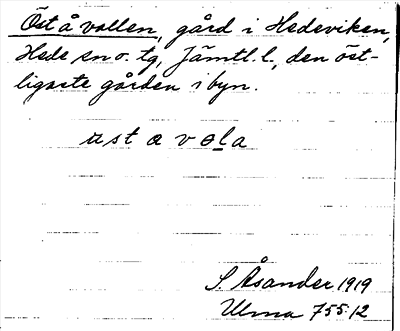 Öst å vallen, gård i Hedeviken,
Hede sn o. tg, Jämtl. l., den öst-
ligaste gården i byn.
ust a vola
S. Åsander 1919
Ulma 755:12